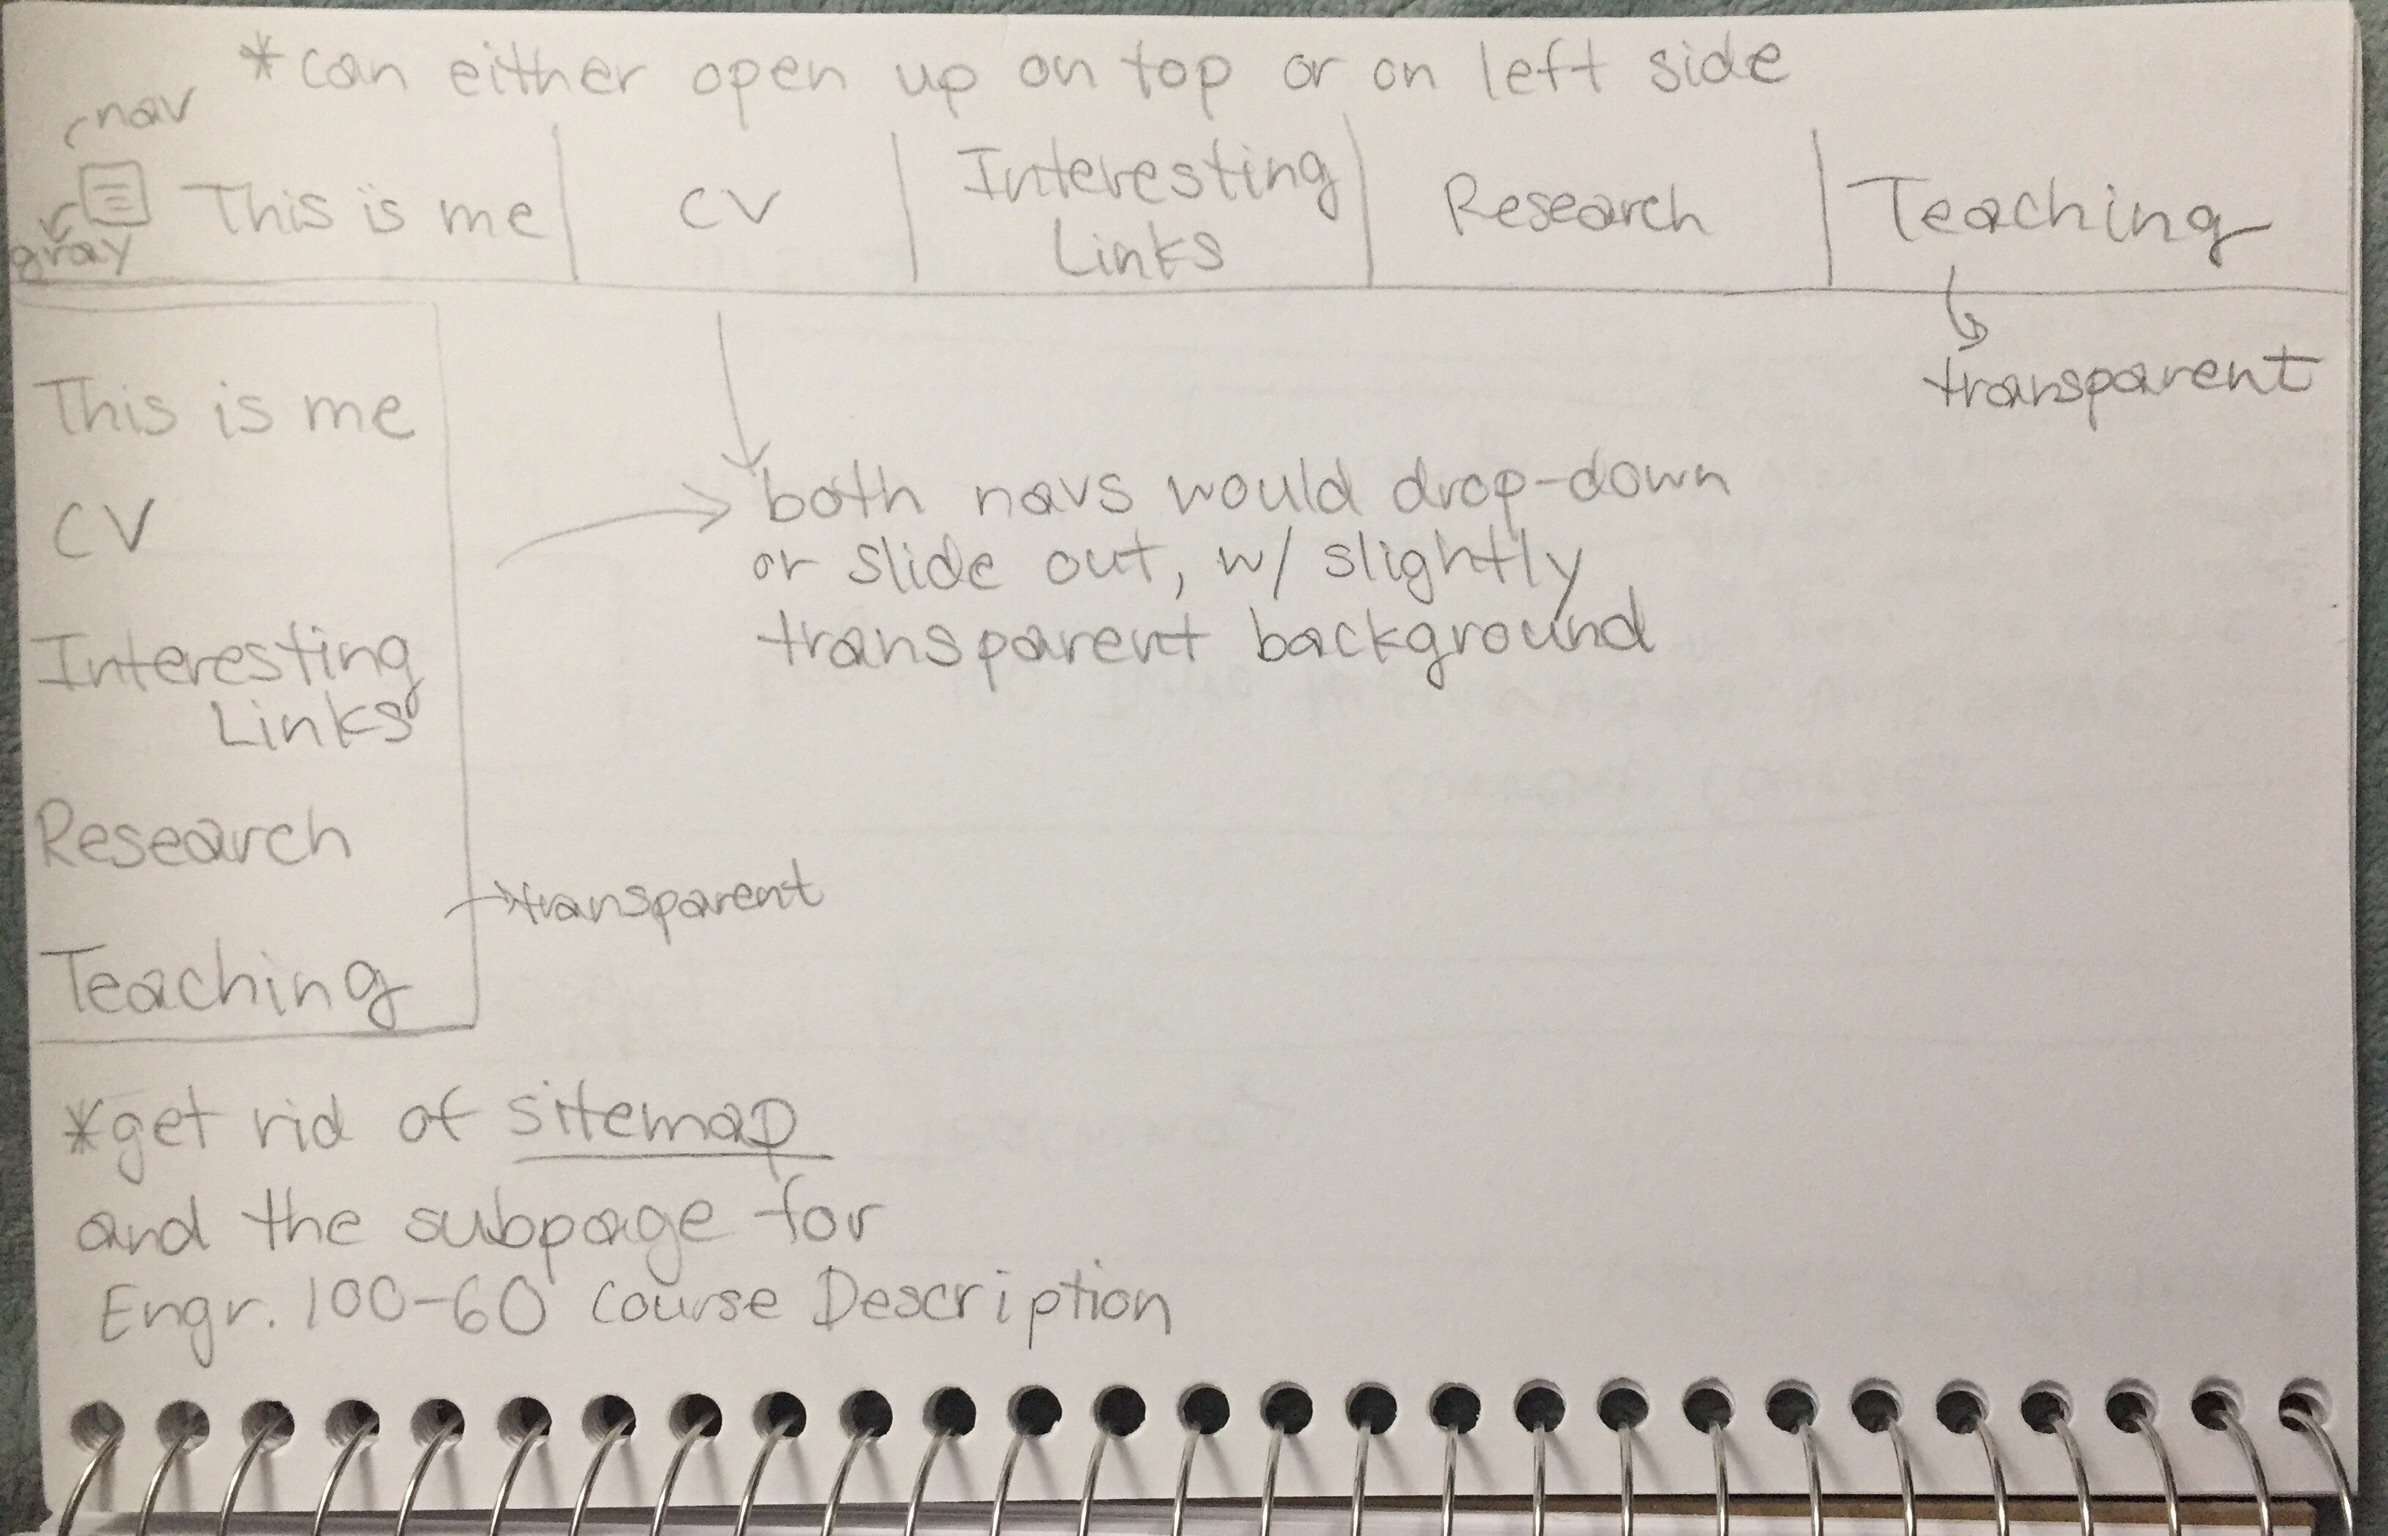 *can either open up on top or on left side
nav
gray
This is me
CV
Interesting
Links
Research
Teaching
transparent
This is me
CV
Interesting
Links
Research
Teaching
transparent
both navs would drop-down
or slide out, w/ slightly
transparent background
*get rid of sitemap
and the subpage for
Engr. 100-60 Course Description